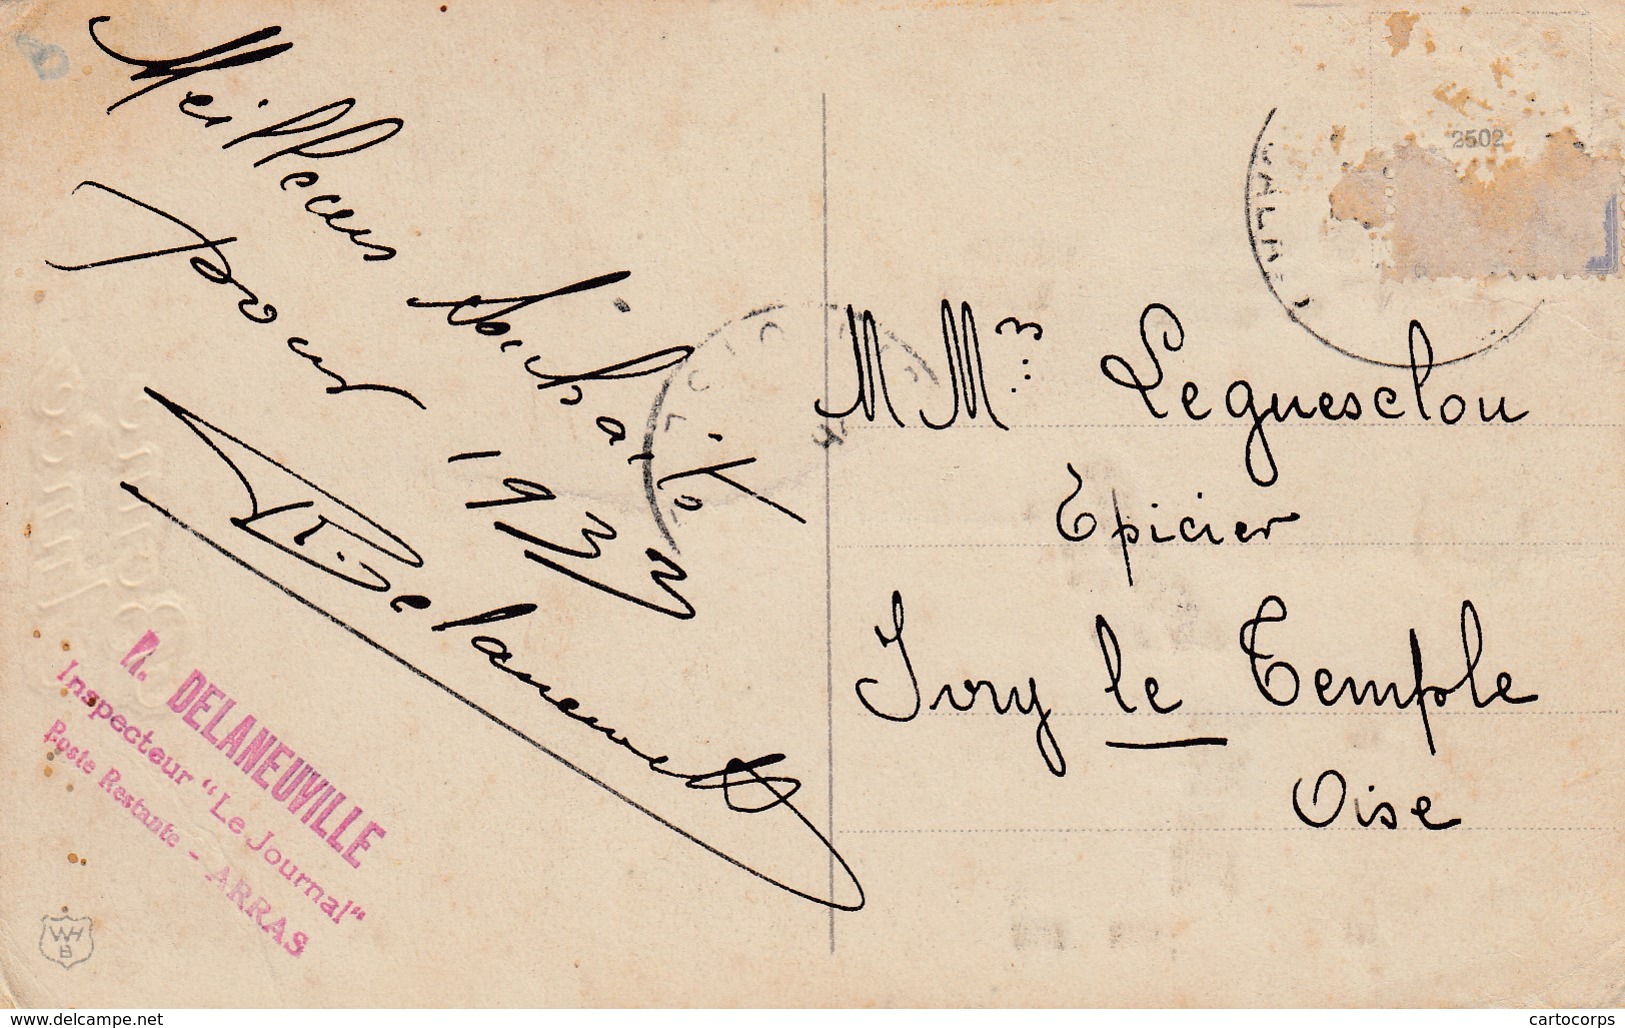 Meilleurs souhaits
pour 1933
Delaneuville
DELANEUVILLE
Inspecteur "Le Journal"
Poste Restante - ARRAS
WH
B
2502
M Mme Leguesclou
Epicier
Ivry le Temple
Oise
www.delcampe.net
cartocorps